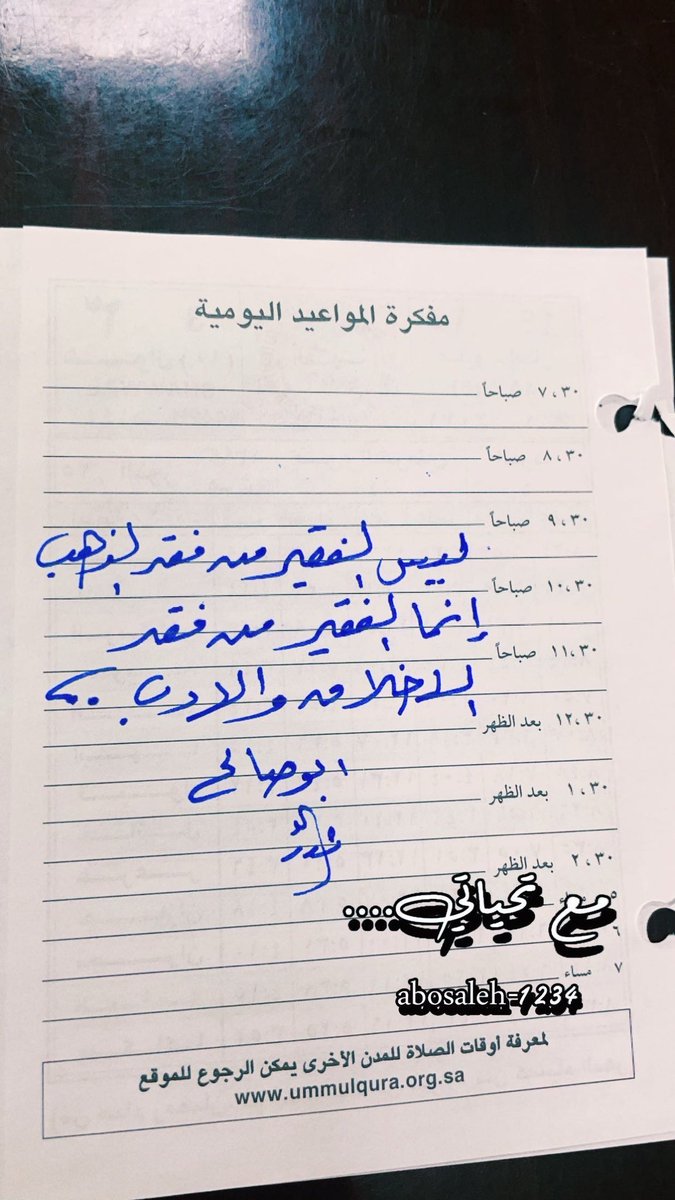 مفكرة المواعيد اليومية
٧،٣٠ صباحاً
٨،٣٠ صباحاً
٩،٣٠ صباحاً
ليس الفقير من فقد الذهب
١٠،٣٠ صباحاً
إنما الفقير من فقد
١١،٣٠ صباحاً
الاخلاق والادب
١٢،٣٠ بعد الظهر
ابو صالح
١،٣٠ بعد الظهر
٢،٣٠ بعد الظهر
مع تحياتي....
٥
٦
٧ مساء
abosaleh-1234
لمعرفة أوقات الصلاة للمدن الأخرى يمكن الرجوع للموقع
www.ummulqura.org.sa